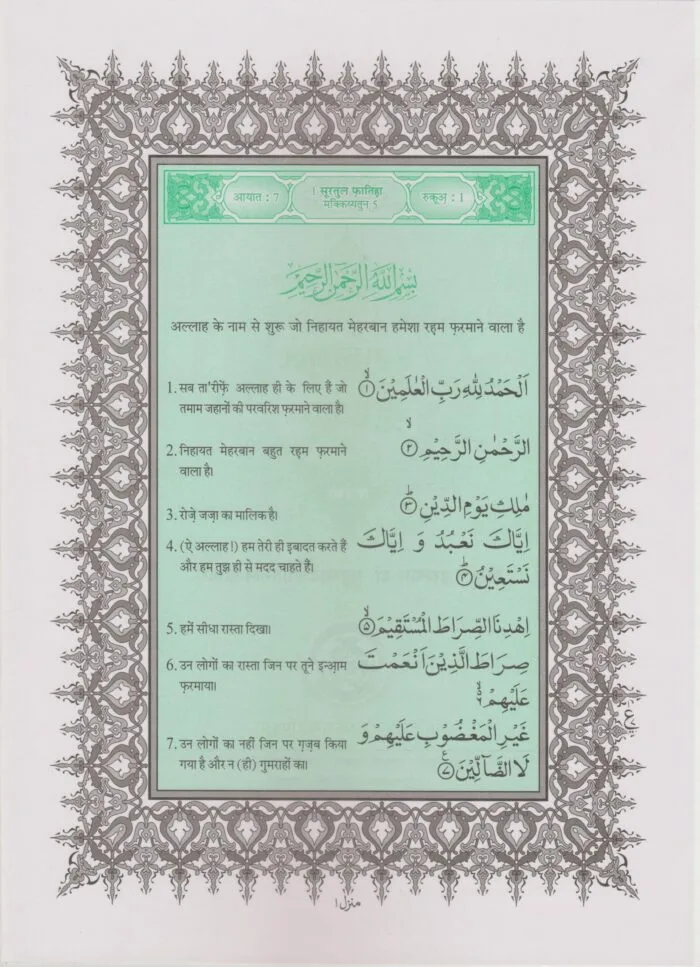 आयात : 7
1 सूरतुल फ़ातिहा
मक्किय्यतुन 5
रुकूअ़ : 1
بِسْمِ اللّٰهِ الرَّحْمٰنِ الرَّحِيْمِ
अल्लाह के नाम से शुरू जो निहायत मेहरबान हमेशा रह़म फ़रमाने वाला है
1. सब ता'रीफ़ें अल्लाह ही के लिए है जो
तमाम जहानों की परवरिश फ़रमाने वाला है।
اَلْحَمْدُ لِلّٰهِ رَبِّ الْعٰلَمِيْنَ ۙ﴿۱﴾
2. निहायत मेहरबान बहुत रह़म फ़रमाने
वाला है।
الرَّحْمٰنِ الرَّحِيْمِ ۙ﴿۲﴾
3. रोज़े जज़ा का मालिक है।
مٰلِكِ يَوْمِ الدِّيْنِ ؕ﴿۳﴾
4. (ऐ अल्लाह!) हम तेरी ही इबादत करते हैं
और हम तुझ ही से मदद चाहते हैं।
اِيَّاكَ نَعْبُدُ وَ اِيَّاكَ
نَسْتَعِيْنُ ؕ﴿۴﴾
5. हमें सीधा रास्ता दिखा।
اِهْدِنَا الصِّرَاطَ الْمُسْتَقِيْمَ ۙ﴿۵﴾
6. उन लोगों का रास्ता जिन पर तूने इन्आ़म
फ़रमाया।
صِرَاطَ الَّذِيْنَ اَنْعَمْتَ
عَلَيْهِمْ ۙ۬۶
7. उन लोगों का नहीं जिन पर ग़ज़ब किया
गया है और न (ही) गुमराहों का।
غَيْرِ الْمَغْضُوْبِ عَلَيْهِمْ وَ
لَا الضَّآلِّيْنَ ﴿۷﴾ع
ع
منزل ۱